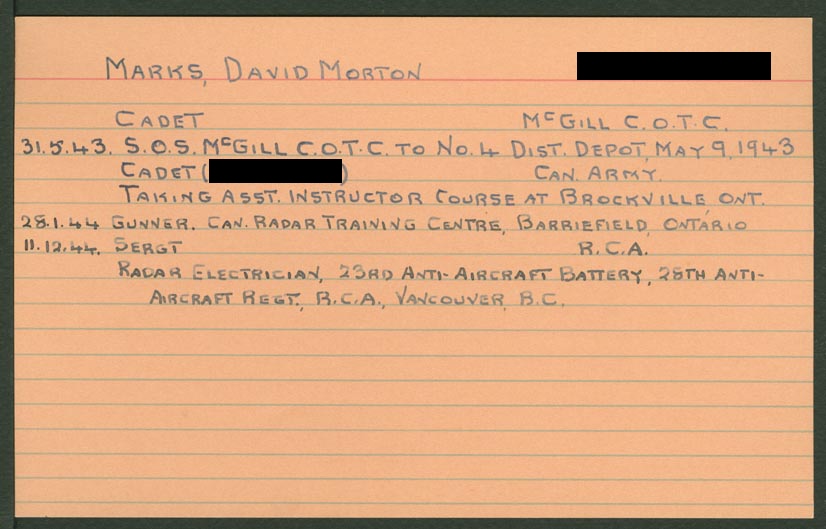 MARKS, DAVID MORTON
CADET McGILL C.O.T.C.
31.5.43. S.O.S. McGILL C.O.T.C. TO No. 4 DIST. DEPOT, MAY 9, 1943
CADET ( ) CAN. ARMY.
TAKING ASST. INSTRUCTOR COURSE AT BROCKVILLE ONT.
28.1.44 GUNNER. CAN. RADAR TRAINING CENTRE, BARRIEFIELD, ONTARIO
11.12.44. SERGT R.C.A.
RADAR ELECTRICIAN, 23RD ANTI-AIRCRAFT BATTERY, 28TH ANTI-
AIRCRAFT REGT., R.C.A., VANCOUVER, B.C.